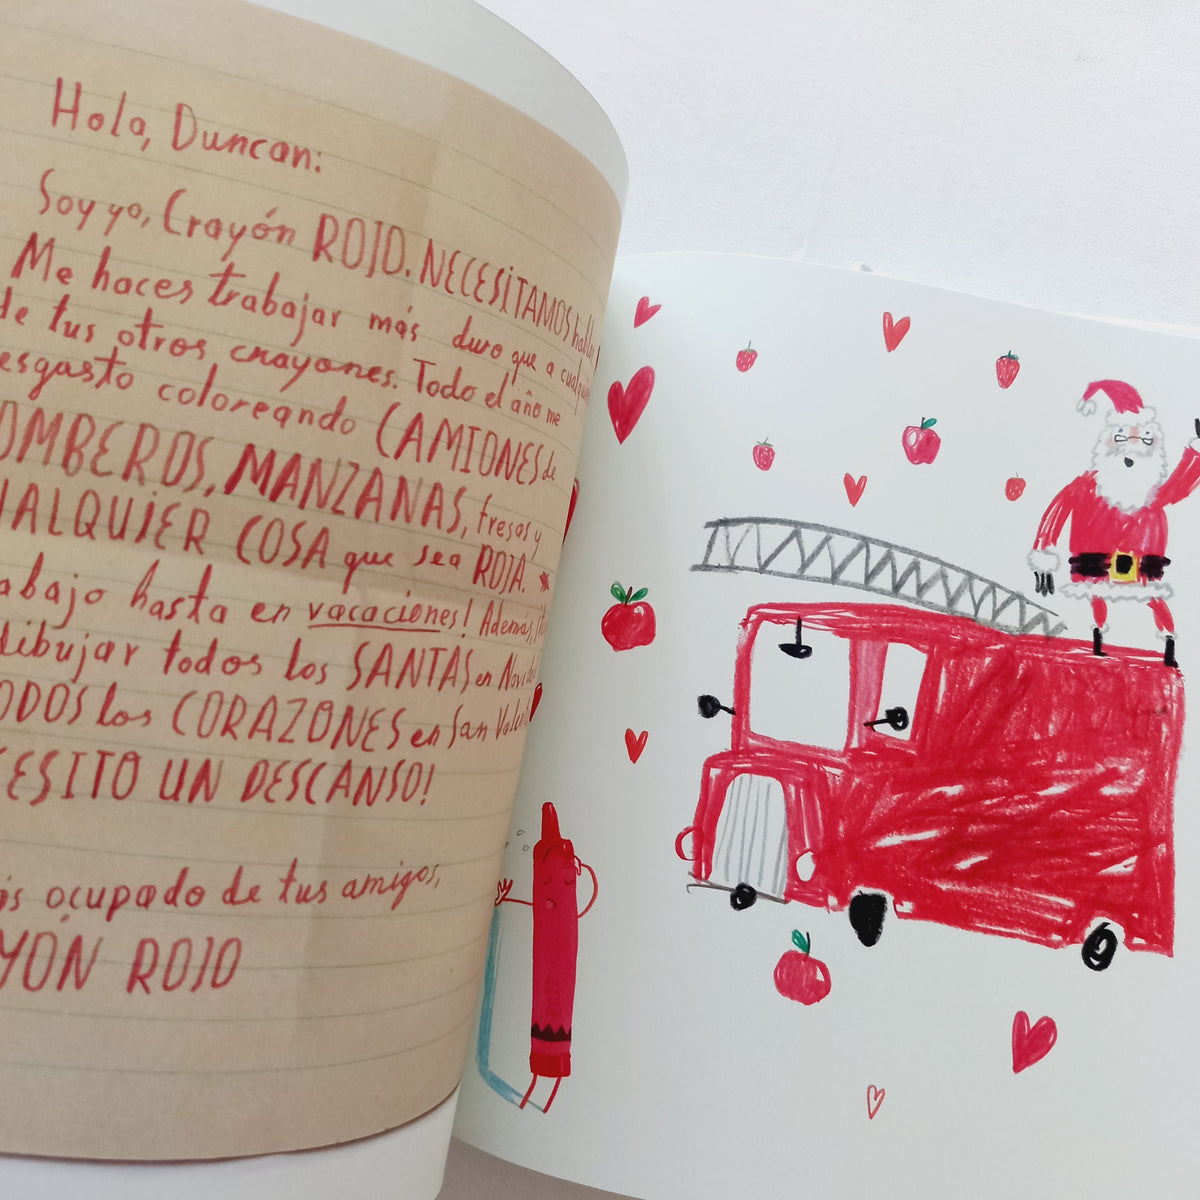 Hola, Duncan:
Soy yo, Crayón ROJO. NECESITAMOS
Me haces trabajar más duro que a
de tus otros crayones. Todo el año me
esgasto coloreando CAMIONES de
OMBEROS, MANZANAS, fresas y
UALQUIER COSA que sea ROJA.
abajo hasta en vacaciones! Además,
dibujar todos los SANTAS en
ODOS los CORAZONES en San
ESITO UN DESCANSO!
ás ocupado de tus amigos,
YÓN ROJO